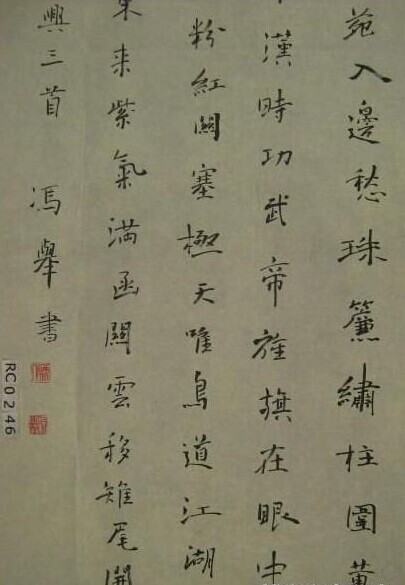 苑入邊愁珠簾繡柱圍黃
漢時功武帝旌旗在眼中
粉紅關塞極天唯鳥道江湖
東来紫氣滿函關雲移雉尾開
興三首 馮舉書
RC0246